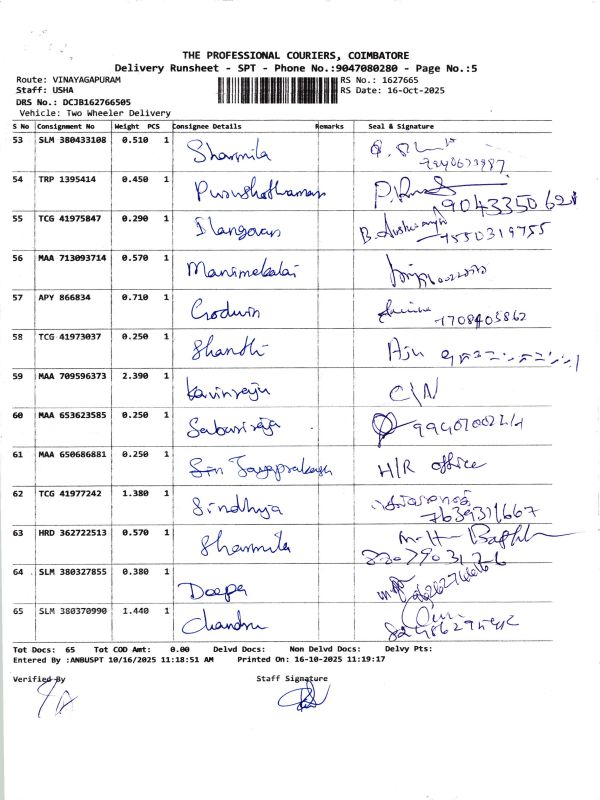 THE PROFESSIONAL COURIERS, COIMBATORE
Delivery Runsheet - SPT - Phone No.:9047080280 - Page No.:5
Route: VINAYAGAPURAM RS No.: 1627665
Staff: USHA RS Date: 16-Oct-2025
DRS No.: DCJB162766505
Vehicle: Two Wheeler Delivery
S No Consignment No Weight PCS Consignee Details Remarks Seal & Signature
53 SLM 380433108 0.510 1 Sharmila
54 TRP 1395414 0.450 1 Purushothaman 9043350628
55 TCG 41975847 0.290 1 Ilangovan 9550319755
56 MAA 713093714 0.570 1 Manimekalai
57 APY 866834 0.710 1 Godwin 7708405862
58 TCG 41973037 0.250 1 Shandhi
59 MAA 709596373 2.390 1 Kavinraju C\N
60 MAA 653623585 0.250 1 Sabariraja
61 MAA 650686881 0.250 1 Jayaprakash H/R office
62 TCG 41977242 1.380 1 Sindhuja
63 HRD 362722513 0.570 1 Sharmila
64 SLM 380327855 0.380 1 Deepa
65 SLM 380370990 1.440 1 Chandru
Tot Docs: 65 Tot COD Amt: 0.00 Delvd Docs: Non Delvd Docs: Delvy Pts:
Entered By :ANBUSPT 10/16/2025 11:18:51 AM Printed On: 16-10-2025 11:19:17
Verified By Staff Signature